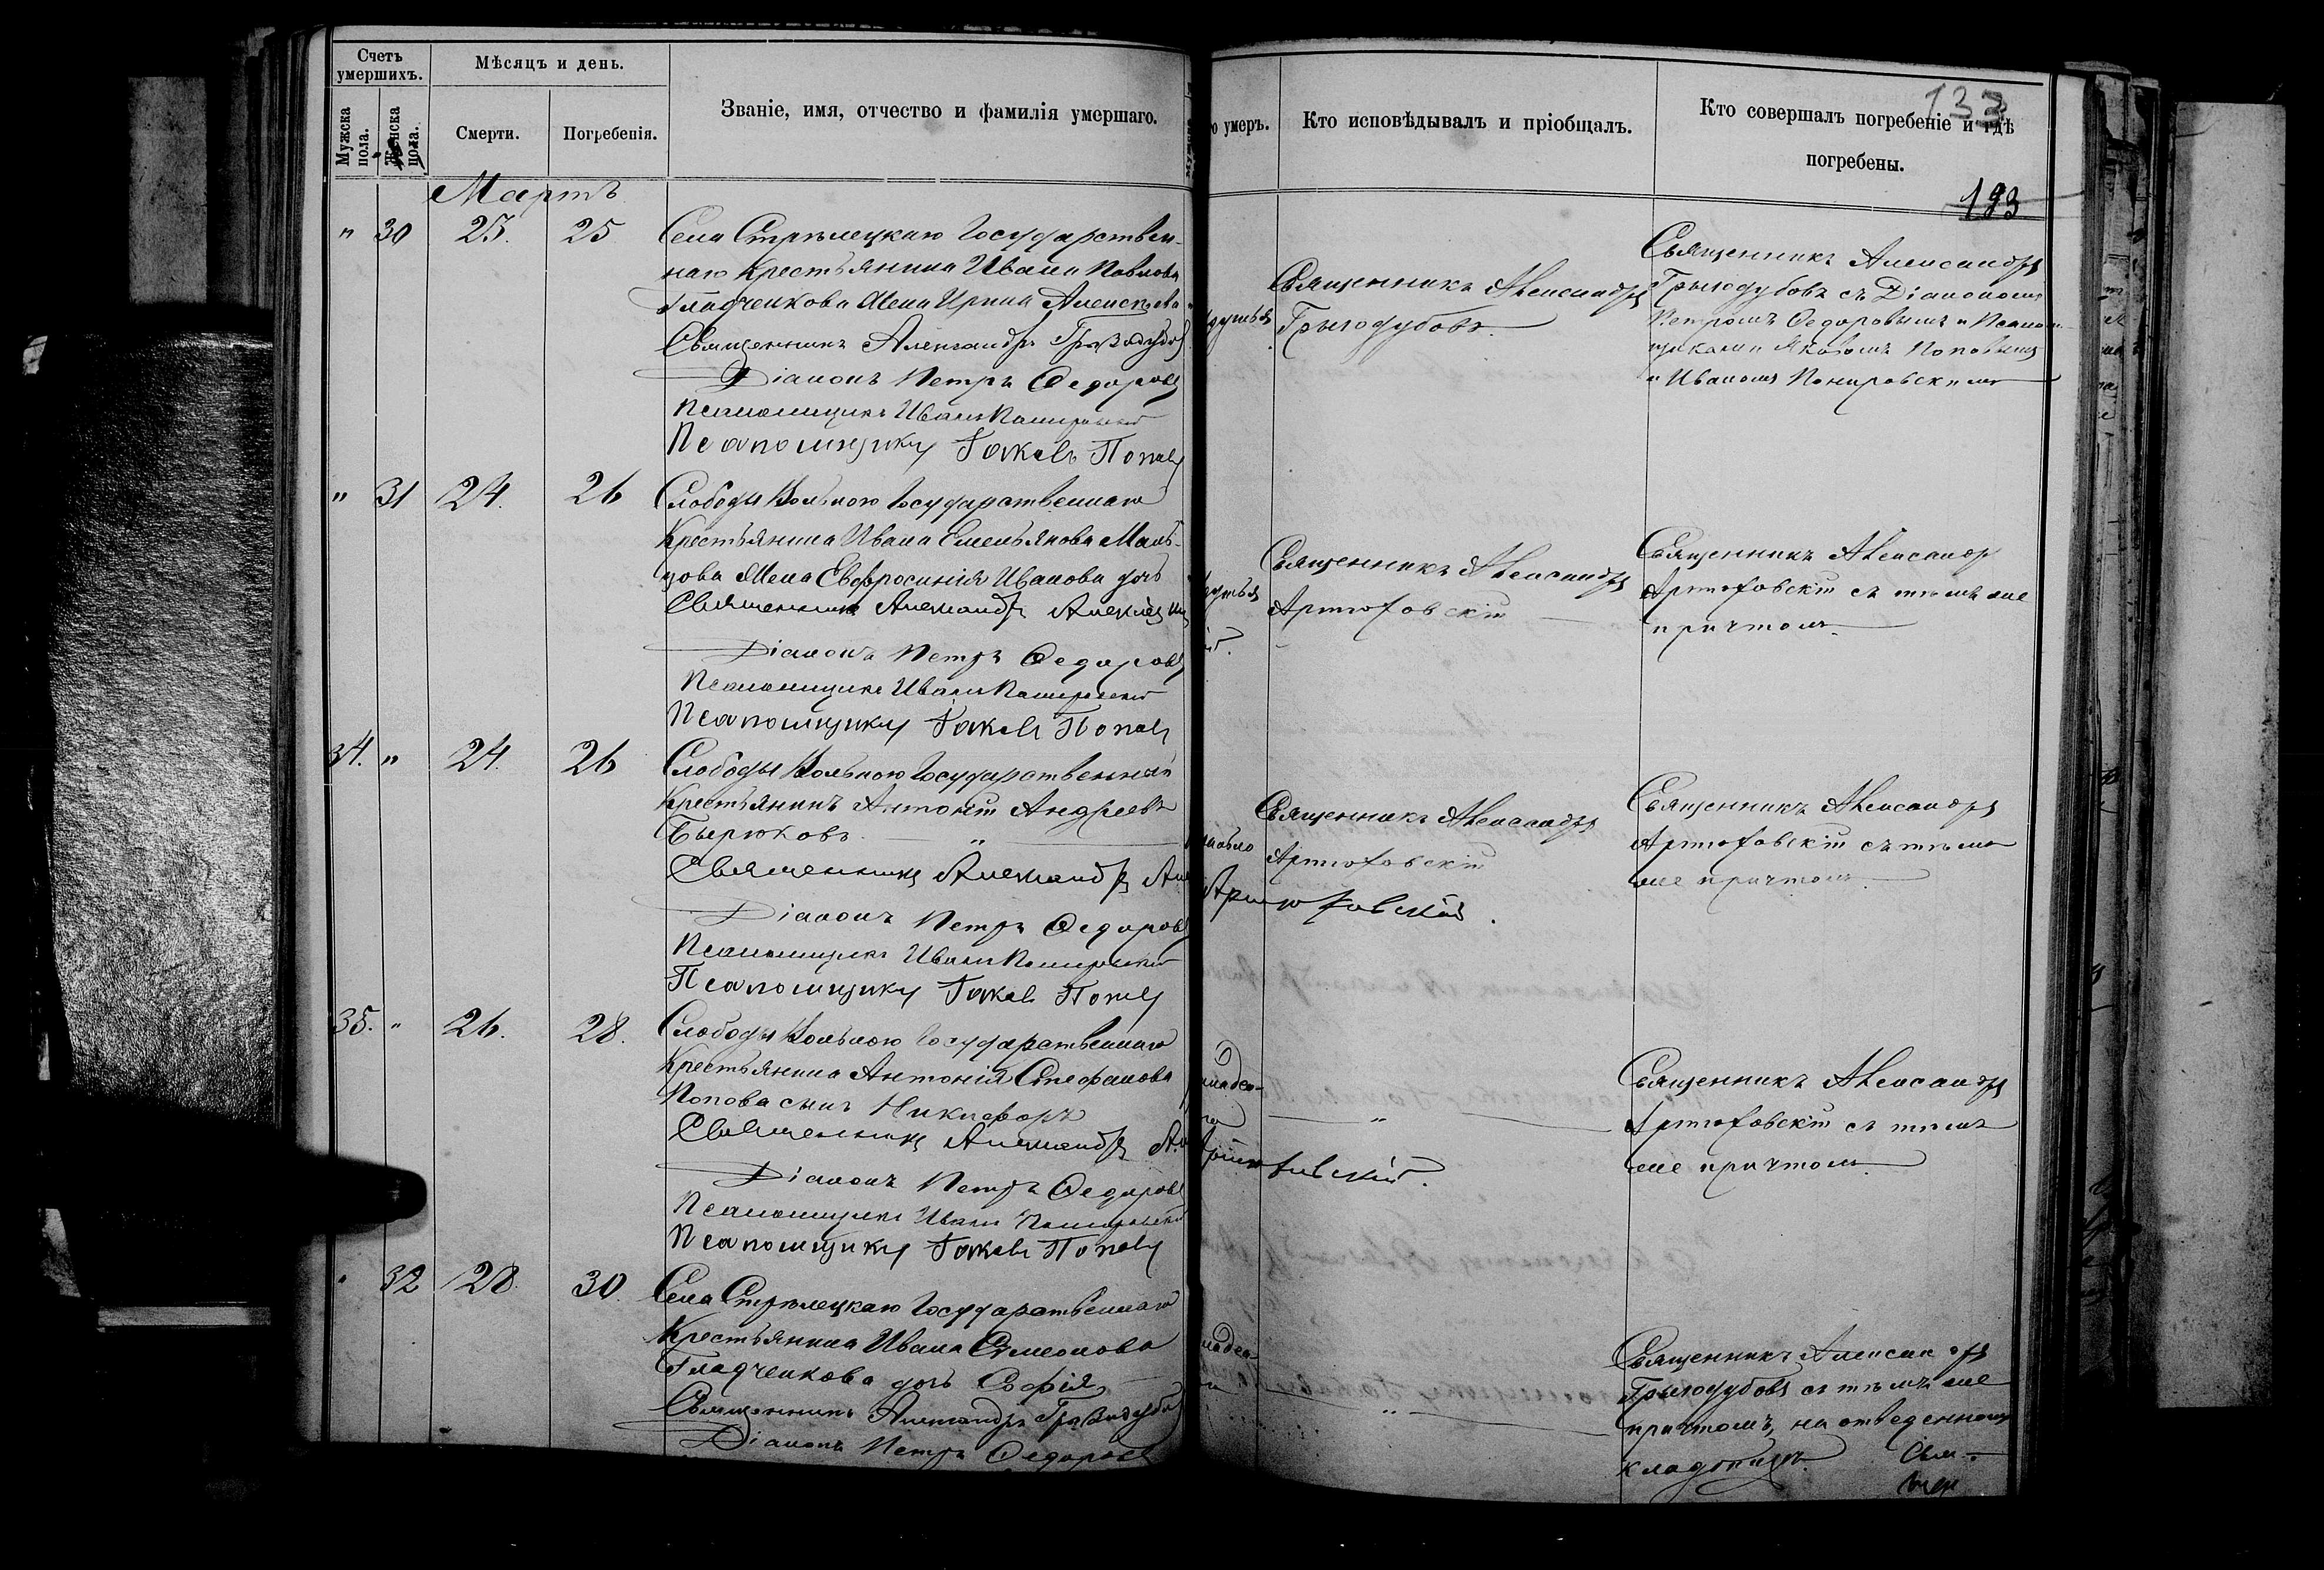 Счетъ умершихъ.
Мѣсяцъ и день.
Званіе, имя, отчество и фамилія умершаго.
Мужска пола.
Женска пола.
Смерти.
Погребенія.
Мартъ
" 30 25. 25
Села Стрѣлецкаго Государствен-
наго Крестьянина Ивана Павлова
Гладченкова жена Ирина Алексѣева
Священникъ Александръ Грызодубов
Діаконъ Петръ Ѳедоровъ
Псаломщикъ Иванъ
Псаломщикъ Іаковъ Поповъ
" 31 24. 26
Слободы Вольной Государственнаго
Крестьянина Ивана Емельянова Маль-
цова жена Евфросинія Иванова дочь
Священникъ Александръ
Діаконъ Петръ Ѳедоровъ
Псаломщикъ Иванъ
Псаломщикъ Іаковъ Поповъ
34. " 24. 26
Слободы Вольной Государственный
Крестьянинъ Антоній Андреевъ
Бырюковъ "
Священникъ Александръ
Діаконъ Петръ Ѳедоровъ
Псаломщикъ Иванъ
Псаломщикъ Іаковъ Поповъ
35. " 26. 28.
Слободы Вольной Государственнаго
Крестьянина Антонія Стефанова
Попова сынъ Никифоръ
Священникъ Александръ
Діаконъ Петръ Ѳедоровъ
Псаломщикъ Иванъ
Псаломщикъ Іаковъ Поповъ
" 32 28. 30.
Села Стрѣлецкаго Государственнаго
Крестьянина Ивана Симеонова
Гладченкова дочь Софія
Священникъ Александръ Грызодубов
Діаконъ Петръ Ѳедоровъ
о умеръ.
Кто исповѣдывалъ и пріобщалъ.
Кто совершалъ погребеніе и гдѣ
погребены.
133
193
Священникъ Александръ
Грызодубовъ
Священникъ Александръ
Грызодубовъ съ Діакономъ
Петромъ Ѳедоровымъ и Псалом-
щиками Яковомъ Поповымъ
и Иваномъ
Священникъ Александръ
Артюховскій
Священникъ Александръ
Артюховскій съ тѣмъ же
причтомъ.
Священникъ Александръ
Артюховскій
Артюховскій.
Священникъ Александръ
Артюховскій съ тѣмъ
же причтомъ.
"
Священникъ Александръ
Артюховскій съ тѣмъ
же причтомъ.
"
Священникъ Александръ
Грызодубовъ съ тѣмъ же
причтомъ, на отведенномъ
кладбищѣ.